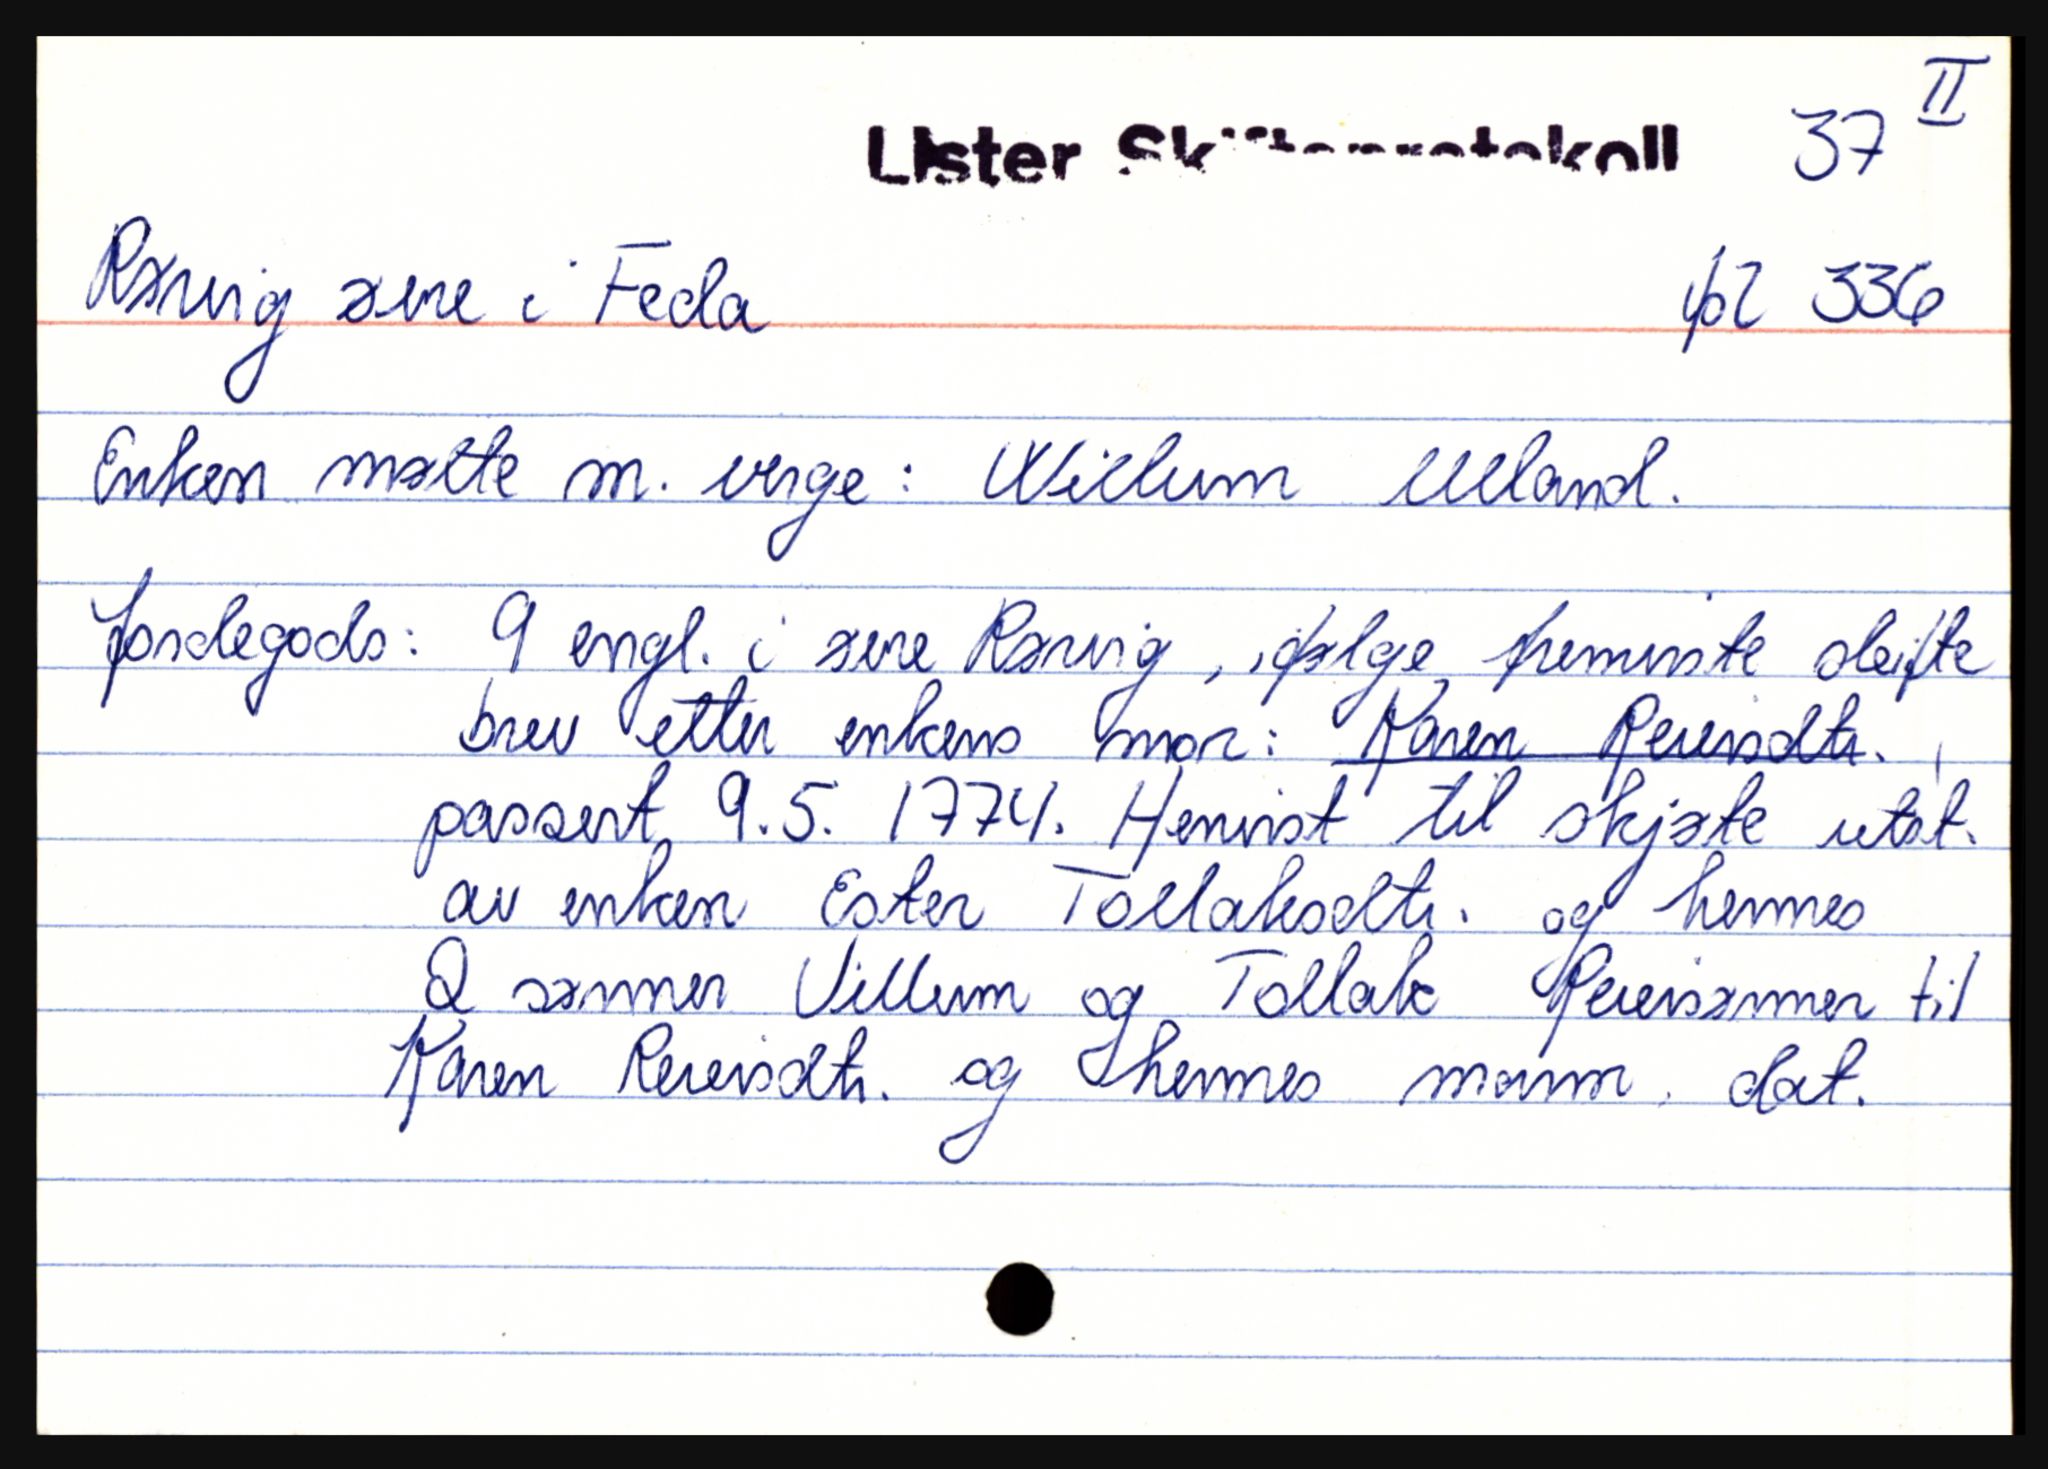 II
Lister Skifteprotokoll 37
Rørvig øvre i Feda fol 336
Enken møtte m. verge: Willum Ueland.
Jordegods: 9 engl. i øvre Rørvig, ifølge fremviste skifte
brev etter enkens mor: Karen Reiersdtr.,
passert 9.5. 1774. Henvist til skjøte utst.
av enken Ester Tollaksdtr. og hennes
2 sønner Villum og Tollak Reiersønner til
Karen Reiersdtr. og hennes mann, dat.